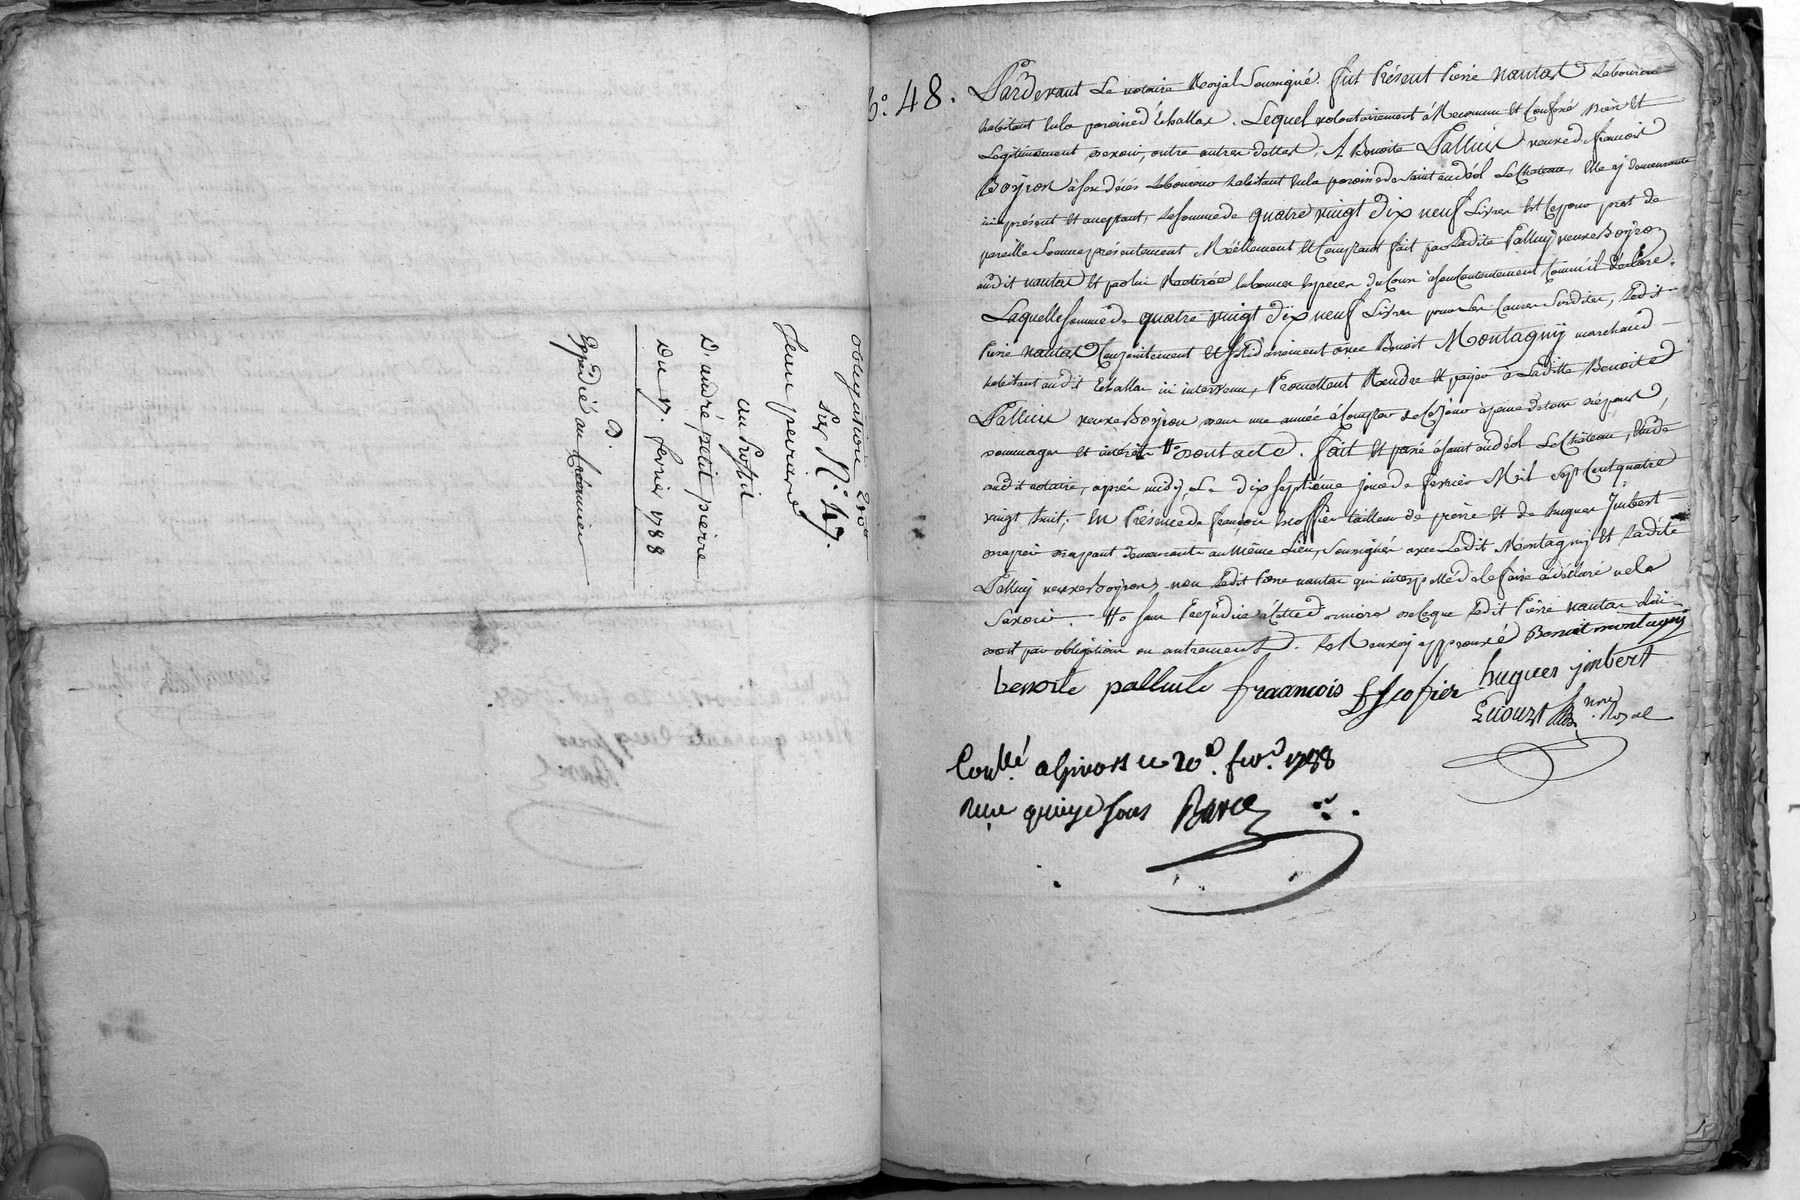 obligation 210#
Sur N.° 47.
Jean peirard
au Profit
D'andré petit pierre
Du 17. fevrier 1788
Expedié au Creancier
N.° 48. Pardevant Le notaire Royal Soussigné. fut Présent Pierre nantas Laboureur
habitant En la paroisse d'Echallas. Lequel volontairement à Reconnu Et Confessé Bien Et
Legitimement devoir, outre autres dettes, A Benoite Palluis veuve de françois
Boyron à son décés Laboureur habitant En la paroisse de Saint andéol Le Chateau, Elle y demeurante
ici présent Et acceptant, La somme de quatre vingt dix neuf Livres Et Ce pour prêt de
pareille Somme présentement Réëllement Et Comptant fait par Ladite Palluy veuve Boyron
audit nantas Et par lui Retirée En bonnes Especes du Cours à son Contentement Comm'il déclare.
Laquelle somme de quatre vingt dix neuf Livres pour Les Causes Susdites, Ledit
Pierre nantas Conjointement Et Solidairement avec Benoit Montagny marchand
habitant audit Echallas ici intervenu, Promettent Rendre Et payer à Laditte Benoite
Palluis veuve Boyron dans une année à Compter de Ce jour à peine de tous dépens,
dommages Et intérêts # dont acte. fait Et passé à Saint andéol Le Château, Etude
dudit notaire, après midy, Le dix Septième jour de fevrier Mil Sept Cent quatre
vingt huit. En Présence de françois Escoffier tailleur de pierre Et de hugues Imbert
drapier drapant demeurants au Même Lieu, Soussignés avec Ledit Montagny Et Ladite
Palluy veuve Boyron, non Ledit Pierre nantas qui interpellé de le faire a déclaré ne le
Savoir. # Sans Préjudice à Cette derniere de ce que Ledit Pierre nantas Lui
doit par obligation ou autrement. Le Renvoy approuvé Benoit montagny
benoite palluile fraancois Escofier hugues jmbert
nre Royal
Con.llé a givors le 20.e fev.r 1788
Reçu quinze sous Barce